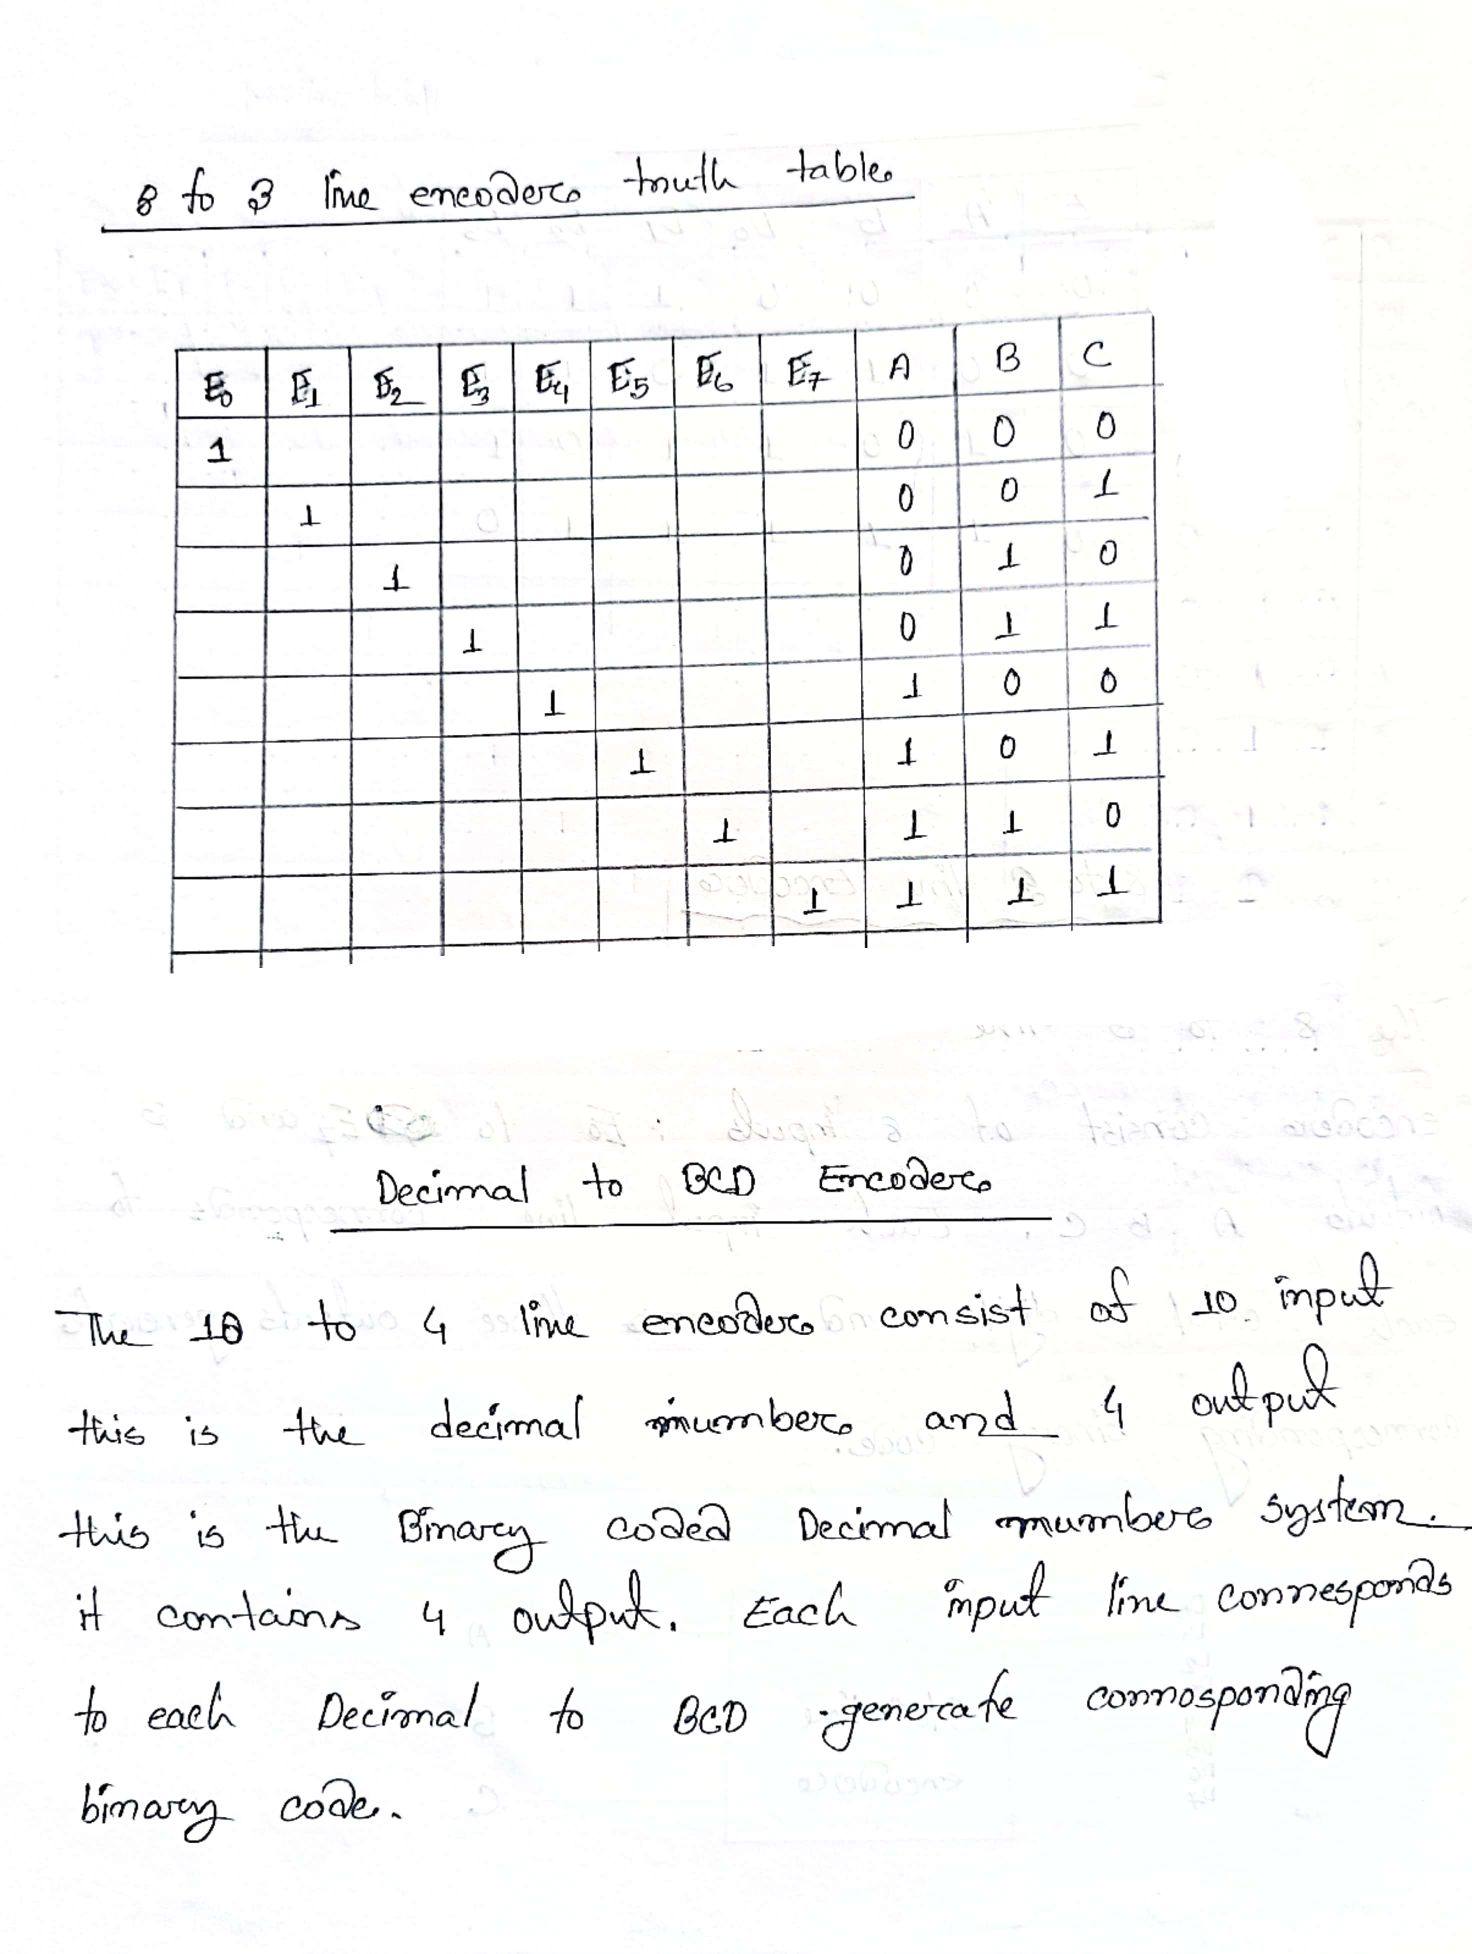 8 to 3 line encoder truth table
E0 E1 E2 E3 E4 E5 E6 E7 A B C
1 0 0 0
1 0 0 1
1 0 1 0
1 0 1 1
1 1 0 0
1 1 0 1
1 1 1 0
1 1 1 1
Decimal to BCD Encoder
The 10 to 4 line encoder consist of 10 input
this is the decimal number and 4 output
this is the Binary coded Decimal number system.
it contains 4 output. Each input line corresponds
to each Decimal to BCD generate corrosponding
binary code.